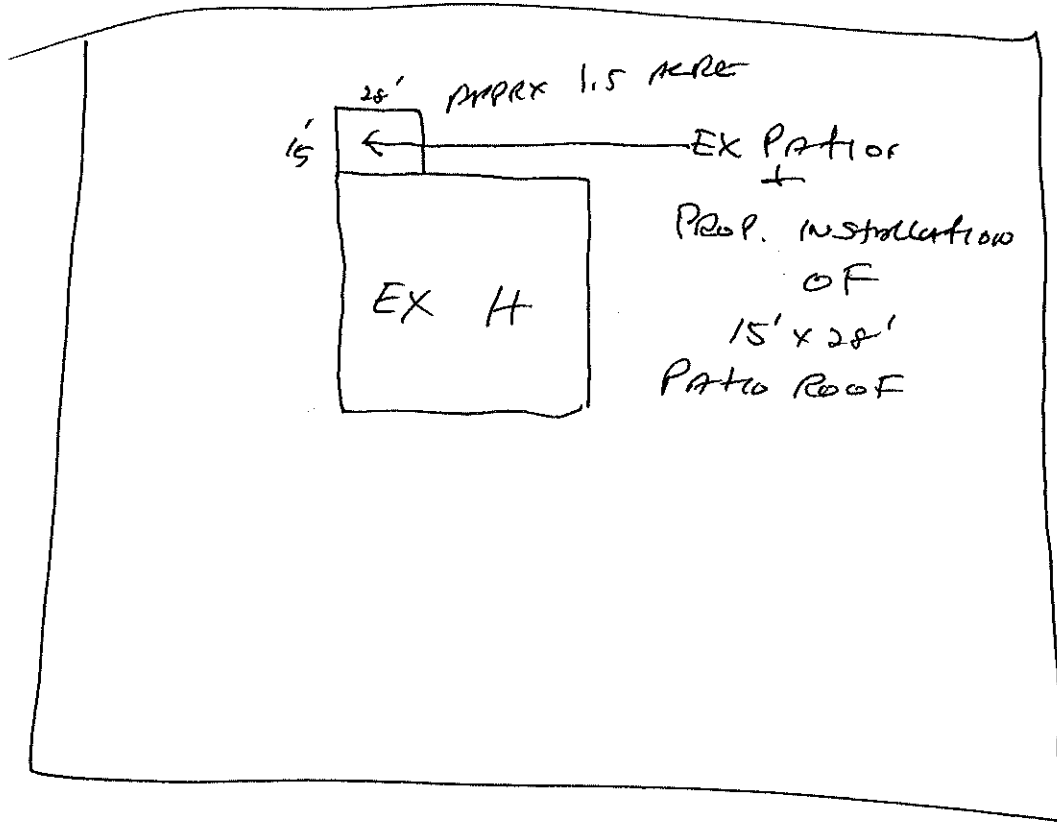 28' APPRX 1.5 ACRE
15'
EX PATIO
+
PROP. INSTALLATION
OF
15' x 28'
PATIO ROOF
EX H